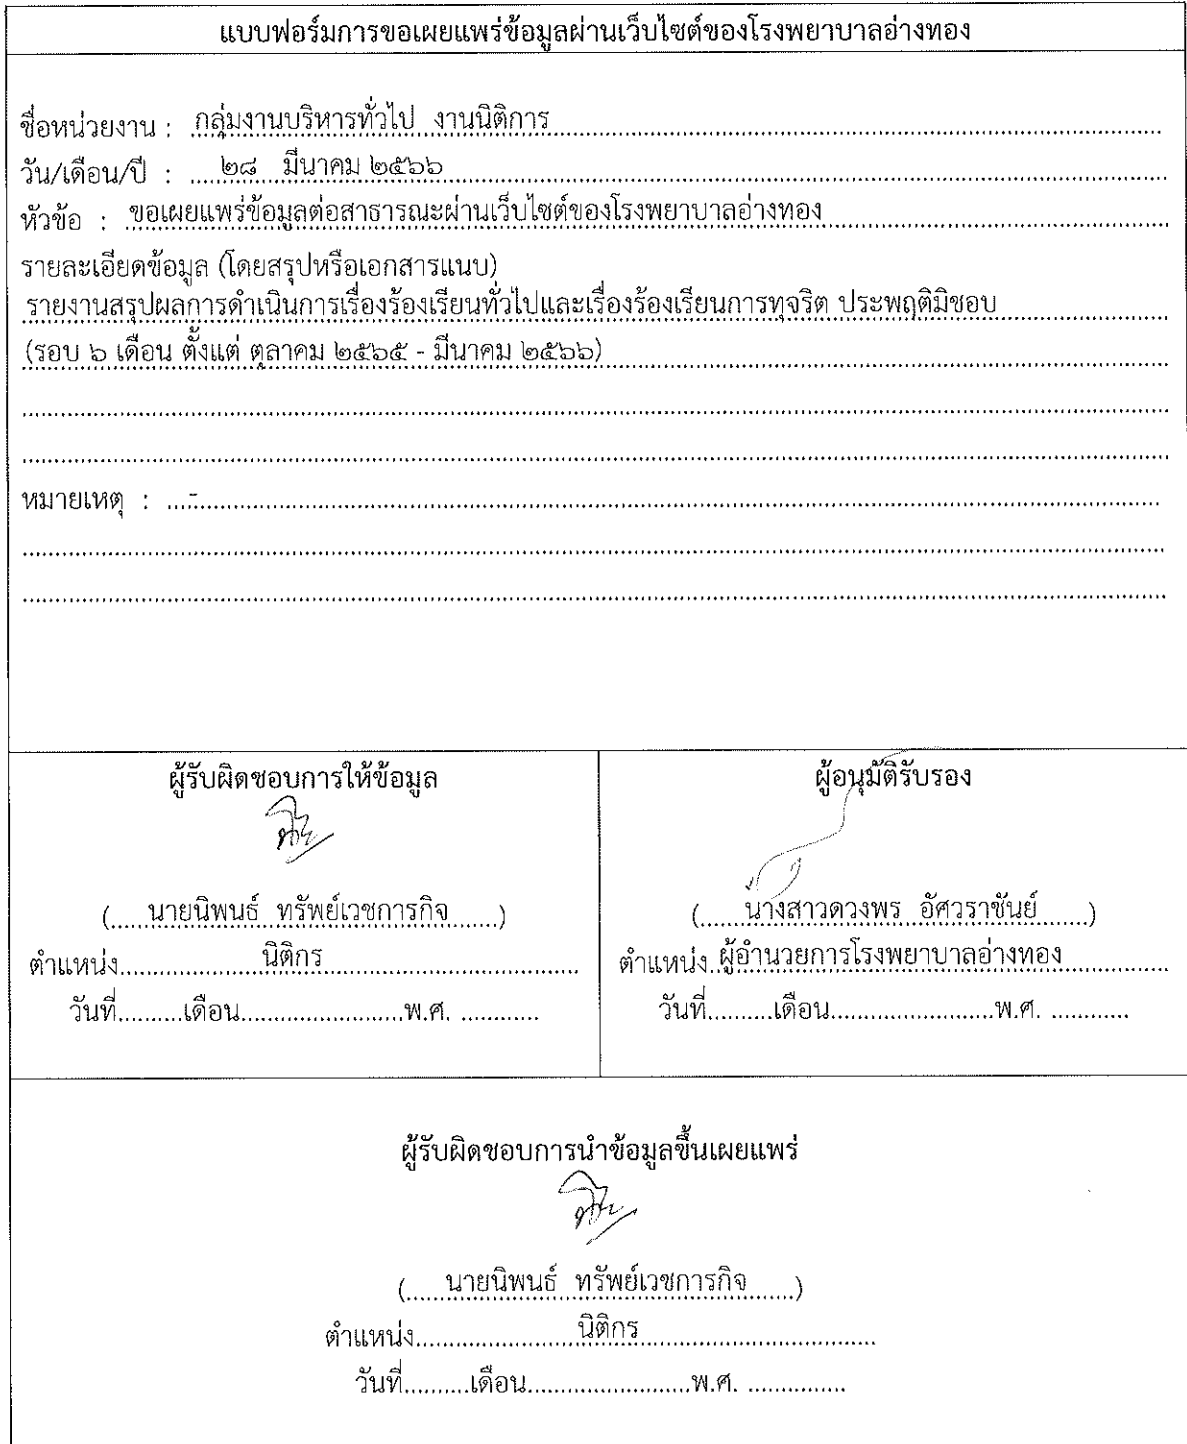 แบบฟอร์มการขอเผยแพร่ข้อมูลผ่านเว็บไซต์ของโรงพยาบาลอ่างทอง
ชื่อหน่วยงาน : กลุ่มงานบริหารทั่วไป งานนิติการ
วัน/เดือน/ปี : ๒๘ มีนาคม ๒๕๖๖
หัวข้อ : ขอเผยแพร่ข้อมูลต่อสาธารณะผ่านเว็บไซต์ของโรงพยาบาลอ่างทอง
รายละเอียดข้อมูล (โดยสรุปหรือเอกสารแนบ)
รายงานสรุปผลการดำเนินการเรื่องร้องเรียนทั่วไปและเรื่องร้องเรียนการทุจริต ประพฤติมิชอบ
(รอบ ๖ เดือน ตั้งแต่ ตุลาคม ๒๕๖๕ - มีนาคม ๒๕๖๖)
หมายเหตุ : ...-...
ผู้รับผิดชอบการให้ข้อมูล
(.....นายนิพนธ์ ทรัพย์เวชการกิจ.......)
ตำแหน่ง..................นิติกร..................
วันที่..........เดือน.........................พ.ศ. ............
ผู้อนุมัติรับรอง
(......นางสาวดวงพร อัศวราชันย์.......)
ตำแหน่ง..ผู้อำนวยการโรงพยาบาลอ่างทอง..........
วันที่..........เดือน.........................พ.ศ. ............
ผู้รับผิดชอบการนำข้อมูลขึ้นเผยแพร่
(......นายนิพนธ์ ทรัพย์เวชการกิจ.......)
ตำแหน่ง.........................นิติกร..............................
วันที่..........เดือน.........................พ.ศ. ...............